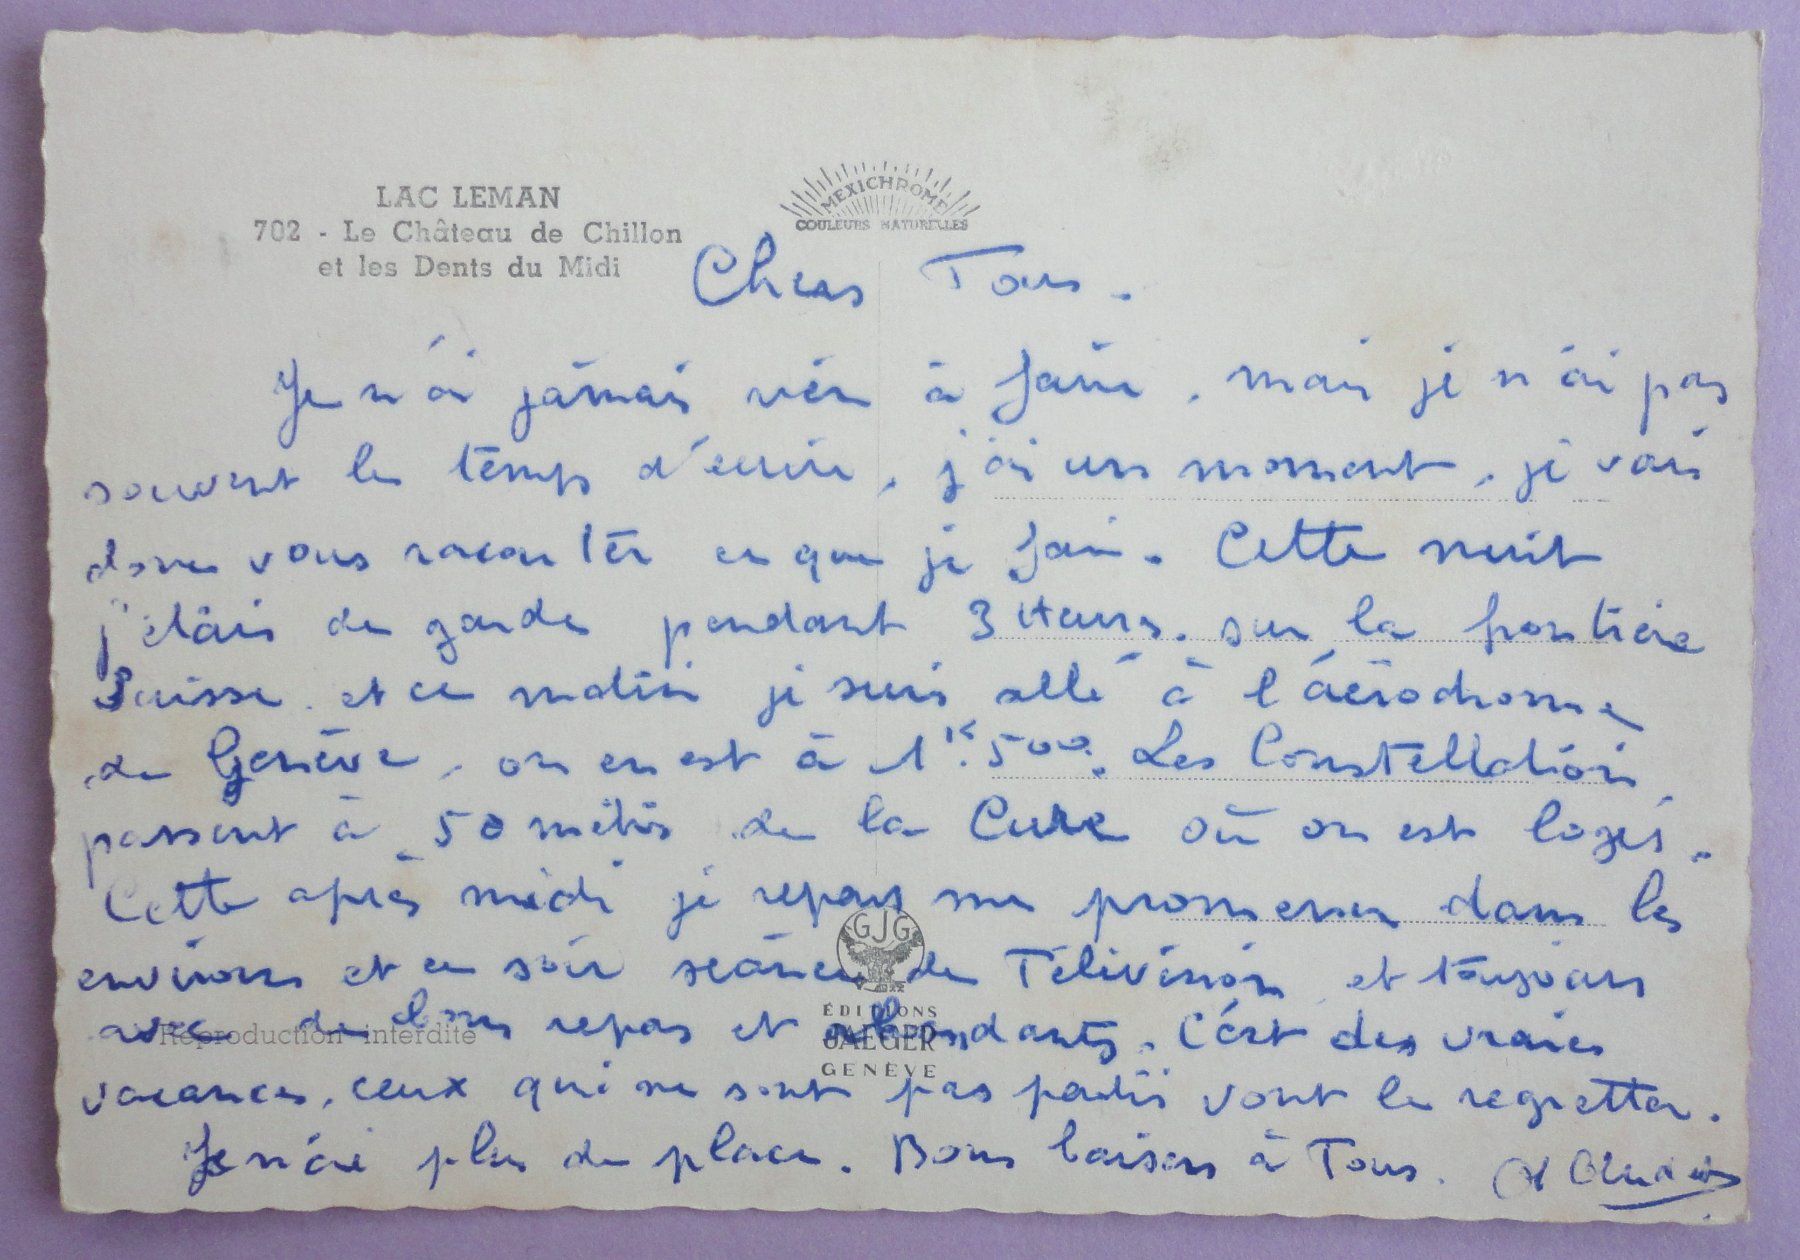 LAC LEMAN
702 - Le Château de Chillon
et les Dents du Midi
MEXICHROME
COULEURS NATURELLES
Chers Tous.
Je n'ai jamais rien à faire, mais je n'ai pas
souvent le temps d'ecrire, j'ai un moment, je vais
donc vous raconter ce que je fais. Cette nuit
j'étais de garde pendant 3 Heures, sur la frontière
Suisse, et ce matin je suis allé à l'aérodrome
de Genève, on en est à 1K.500. Les Constellations
passent à 50 mètres de la Cure où on est logés.
Cette après midi je repars me promener dans les
environs et ce soir séance de Télévision, et toujours
avec de bons repas et abondants. C'est des vraies
vacances, ceux qui ne sont pas partis vont le regretter.
Je n'ai plus de place. Bons baisers à Tous.
GJG
ÉDITIONS
JAEGER
GENÈVE
Reproduction interdite